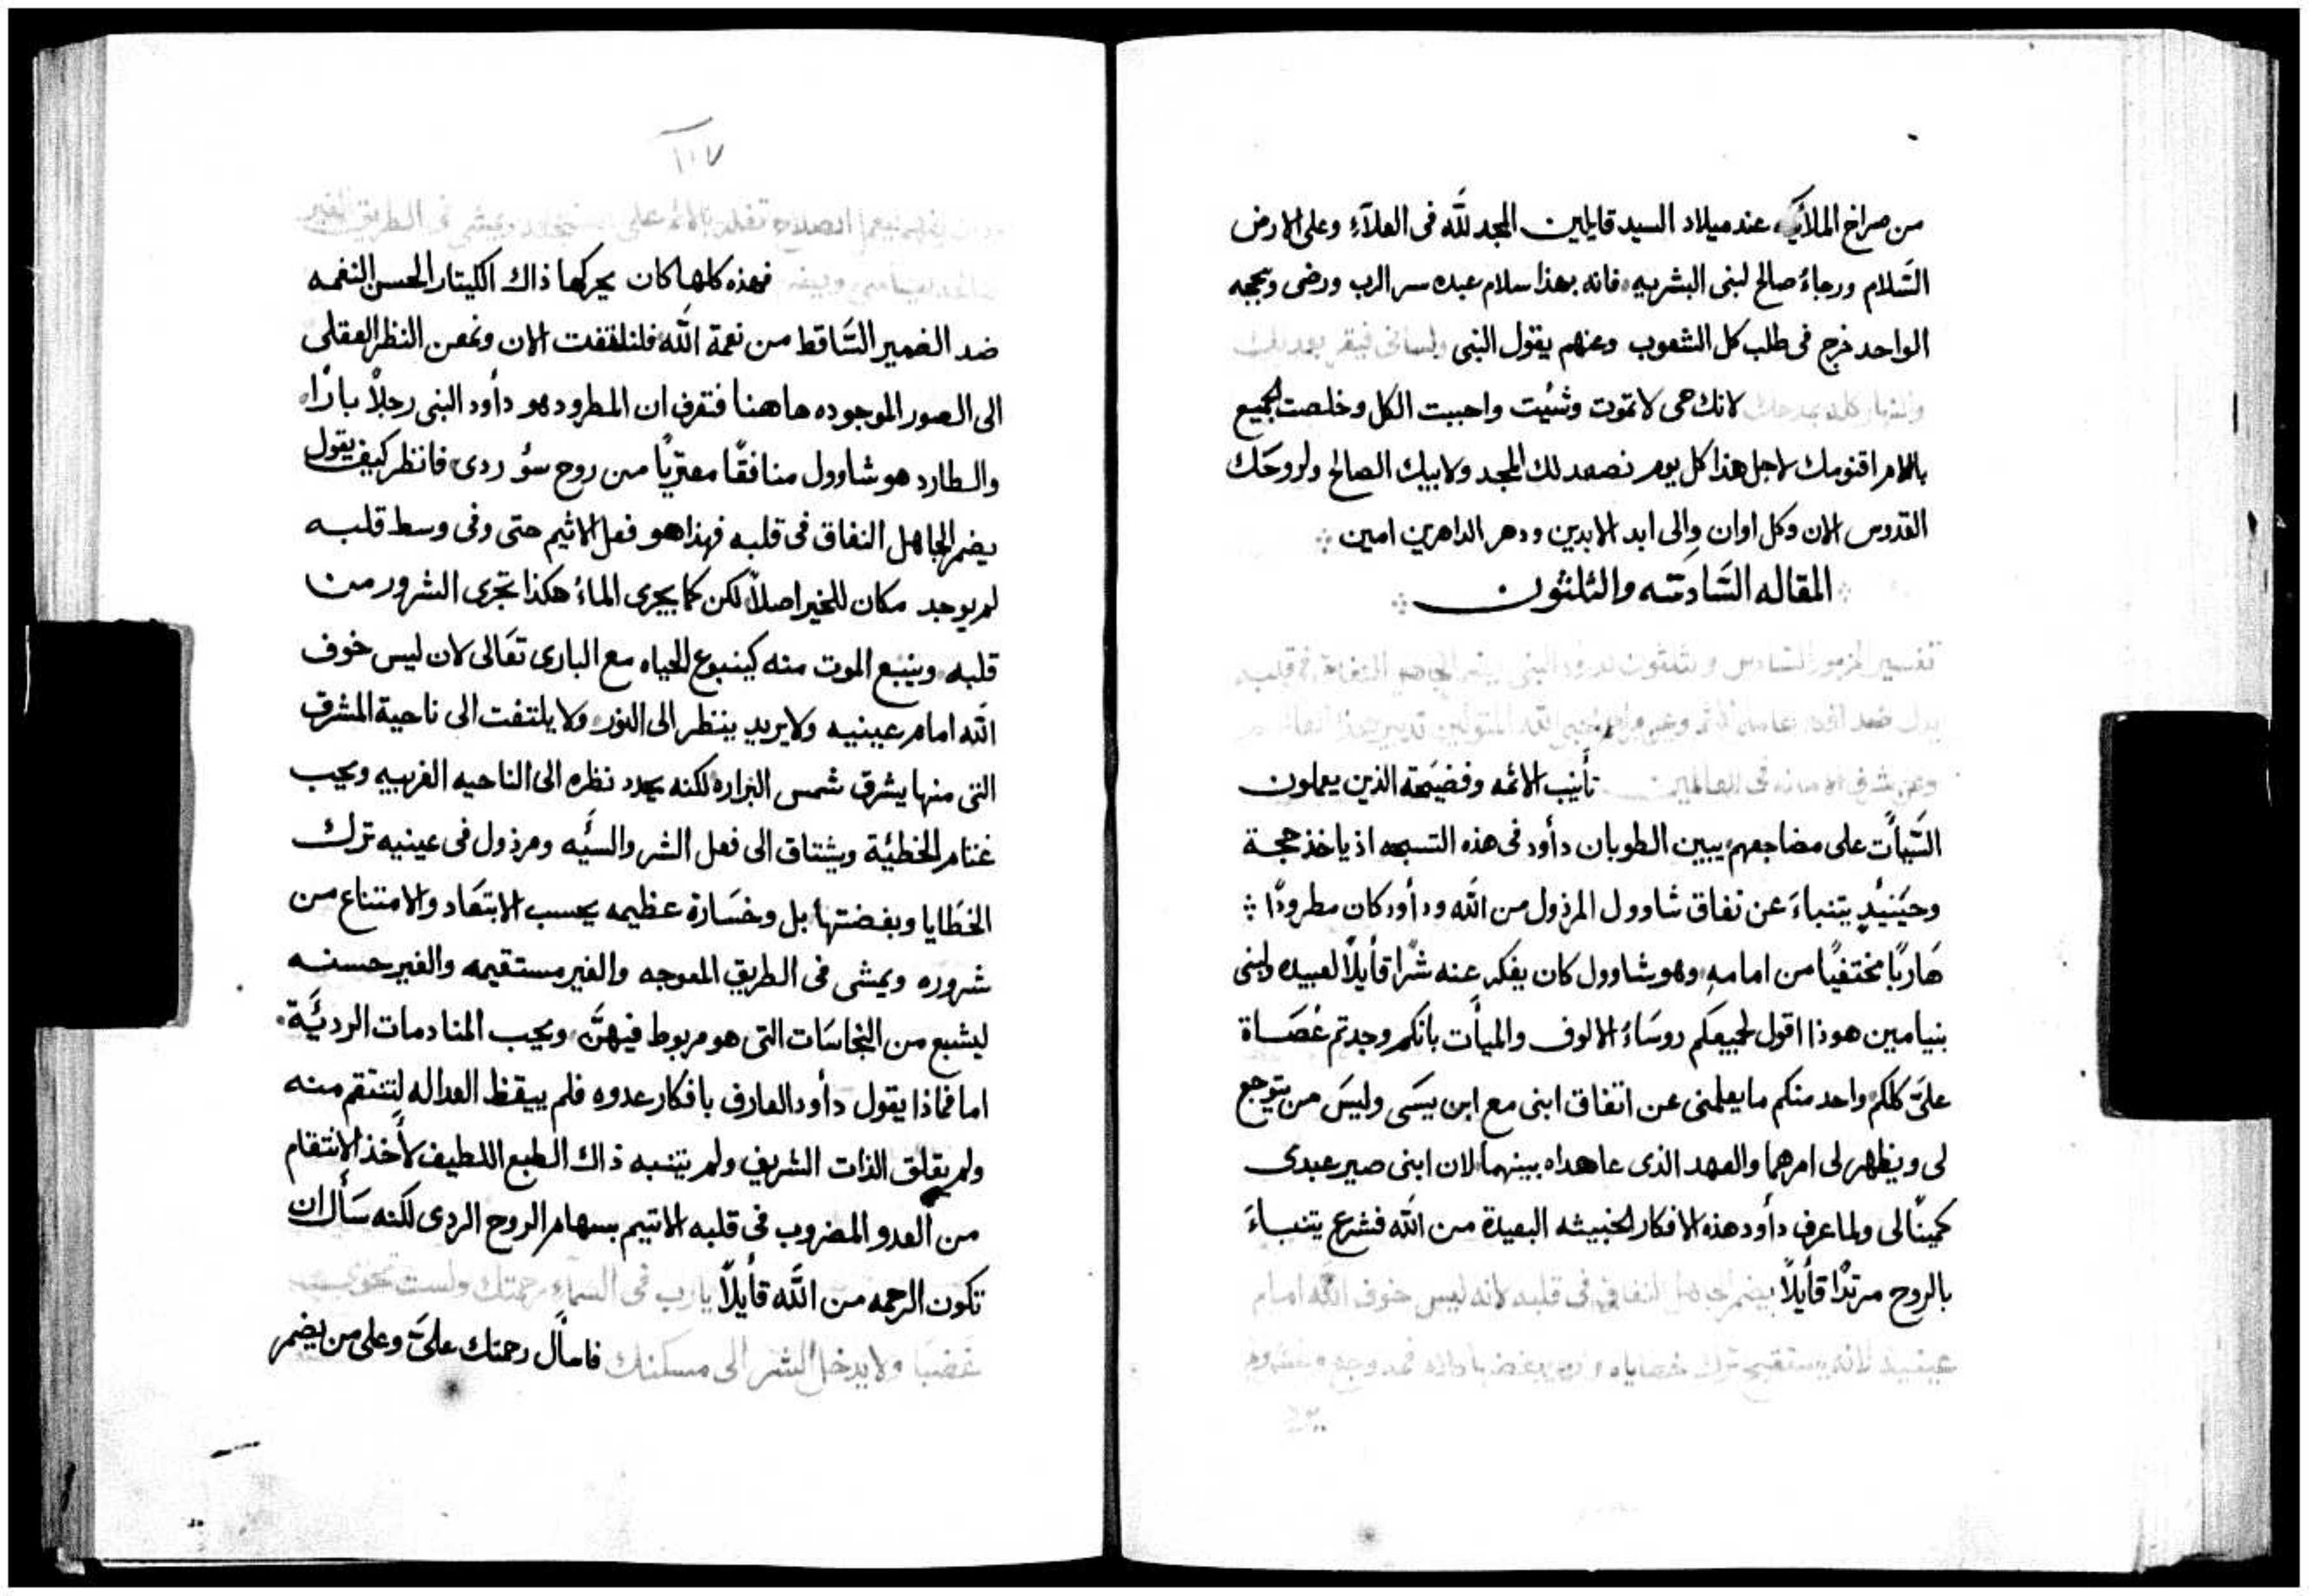 من صراخ الملأيكه عند ميلاد السيد قايلين المجد لله فى العلآءِ وعلى الارض
السَّلام ورجاءُ صالح لبنى البشريه، فانه بهذا سلام عبده سر الرب ورضى وبمجيه
الواحد خرج فى طلب كل الشعوب وعنهم يقول النبى ولسانى
لانك حى لا تموت وشيُت واحببت الكل وخلصت الجميع
بالام اقنومك لاجل هذا كل يوم نصعد لك المجد ولابيك الصالح ولروحَك
القدوس الان وكل اوان وِالى ابد الابدين ودهر الداهرين امين
المقاله السَّادسَه والثلثون
تفسير المزمور السَّادس وثلثون لداود النبى يضمر الجاهل النفاق فى قلبه
وعن شرف الامانه فى العالمين تأنيب الائمه وفضيَحة الذين يعملون
السَّيأت على مضاجعهم، يبين الطوبان دأود فى هذه التسبحه اذ ياخذ حجة
وحيَنيُدٍ يتنباءَ عن نفاق شاوول المرذول من الله ودأود كان مطرودًا
هَاربًا مختفيًا من امامهِ، وهو شاوول كان يفكر عنه شرًا قأيلاً لعبيده ولبنى
بنيامين هوذا اقول لجميعكم روسَاءُ الالوف والميأت بانكم وجدتم عُصَاة
علىَّ كلكم واحد منكم ما يعلمنى عن اتفاق ابنى مع ابن يسَى وليسَ من يتوجع
لى ويظهر لى امرهما والعهد الذى عاهداه بينهما، لان ابنى صير عبدى
كمينًا لى ولما عرف دأود هذه الافكار الخبيثه البعيدة من الله فشرع يتنباءَ
بالروح مرتلاً قأيلاً يضمر الجاهل النفاق فى قلبه لانه ليس خوف الله امام
عينيه لانه يستقبح ترك خطاياه
١١٧
فى الطريق الغير
فهذه كلها كان يحركها ذاك الكيتار الحسن النغمه
ضد الضمير السَّاقط من نعمة الله، فلنلتفت الان ونمعن النظر العقلى
الى الصور الموجوده هاهنا فتعرف ان المطرود هو دأود النبى رجلاً بارًا،
والطارد هو شاوول منافقًا معتريًا من روح سؤ ردى، فانظر كيف يقول
يضمر الجاهل النفاق فى قلبه فهذا هو فعل الاثيم حتى وفى وسط قلبه
لم يوجد مكان للخير اصلاً لكن كما يجرى الماءُ هكذا تجرى الشرور من
قلبه، وينبع الموت منه كينبوع الحياه مع البارى تعَالى لان ليس خوف
الله امام عينيه ولا يريد ينظر الى النور، ولا يلتفت الى ناحية المشرق
التى منها يشرق شمس البراره لكنه يحدد نظره الى الناحيه الغربيه ويحب
غتام الخطئية ويشتاق الى فعل الشر والسيَه ومرذول فى عينيه ترك
الخطَايا وبغضتها، بل وخسَارة عظيمه يحسب الابتعَاد والامتناع من
شروره ويمشى فى الطريق المعوجه والغير مستقيمه والغير حسنه
ليشبع من النجاسَات التى هو مربوط فيهنَّ، ويحب المنادمات الرديَّة،
اما فماذا يقول دأود العارف بافكار عدوه فلم ييقظ العداله لتنتقم منه
ولم يقلق الذات الشريف ولم يتنبه ذاك الطبع اللطيف لأخذ الانتقام
من العدو المضروب فى قلبه الاتيم بسهام الروح الردى لكنه سَأل ان
تكون الرحمه من الله قأيلاً يا رب فى السمآءِ رحمتك ولست
غضبًا ولا يدخل الشر الى مسكنك فاسأل رحمتك علىَّ وعلى من يضمر